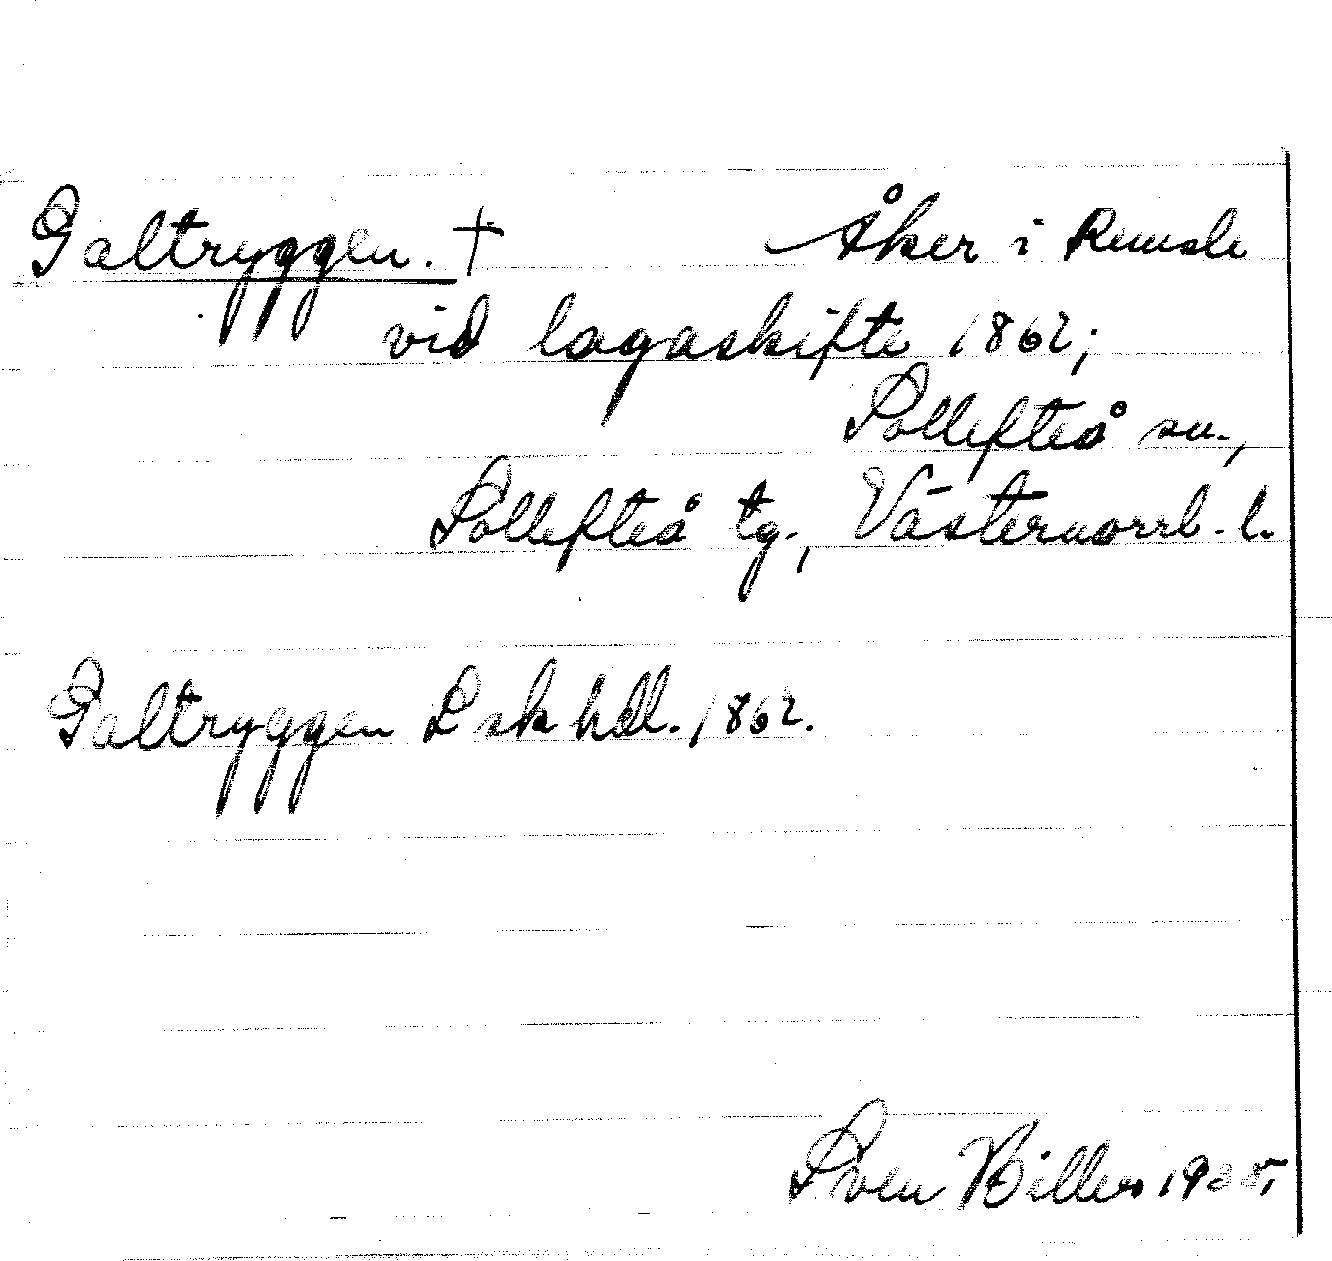 Galtryggen. † Åker i Remsle
vid lagaskifte 1862;
Sollefteå sn.,
Sollefteå tg., Västernorrl. l.
Galtryggen L sk hdl. 1862.
Sven Biller